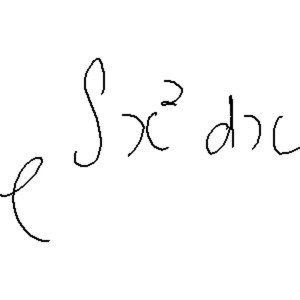 e^{∫x² dx}